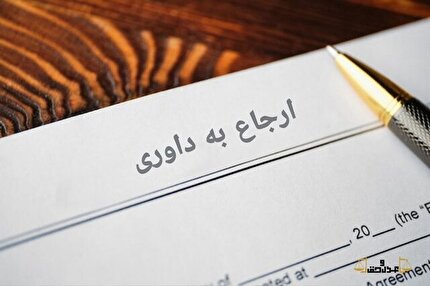 ارجاع به داوری
, 20__ (the "E
nted at
Agreement
of